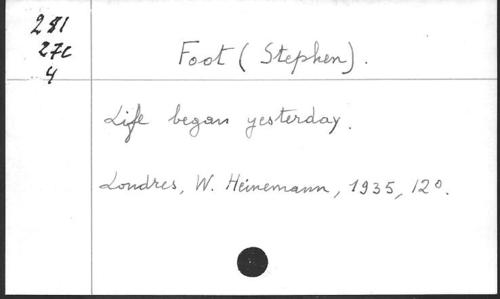 281
27c
4
Foot (Stephen).
Life began yesterday.
Londres, W. Heinemann, 1935, 12º.